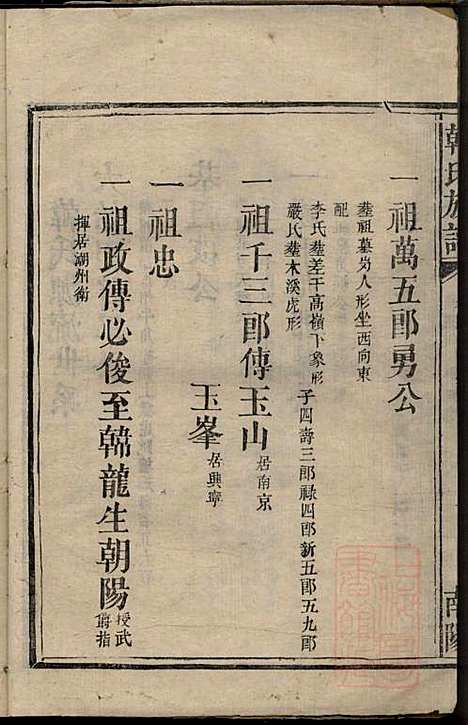 韓氏族譜
一
南陽
一祖萬五郎勇公
葬祖墓岗人形坐西向東
配
李氏葬差干高嶺下象形
嚴氏葬木溪虎形
子四壽三郎禄四郎新五郎五九郎
一祖千三郎傳玉山居南京
玉峯居興寧
一祖忠
一祖政傳必俊至韓龍生朝陽授武爵指
揮居潮州衛